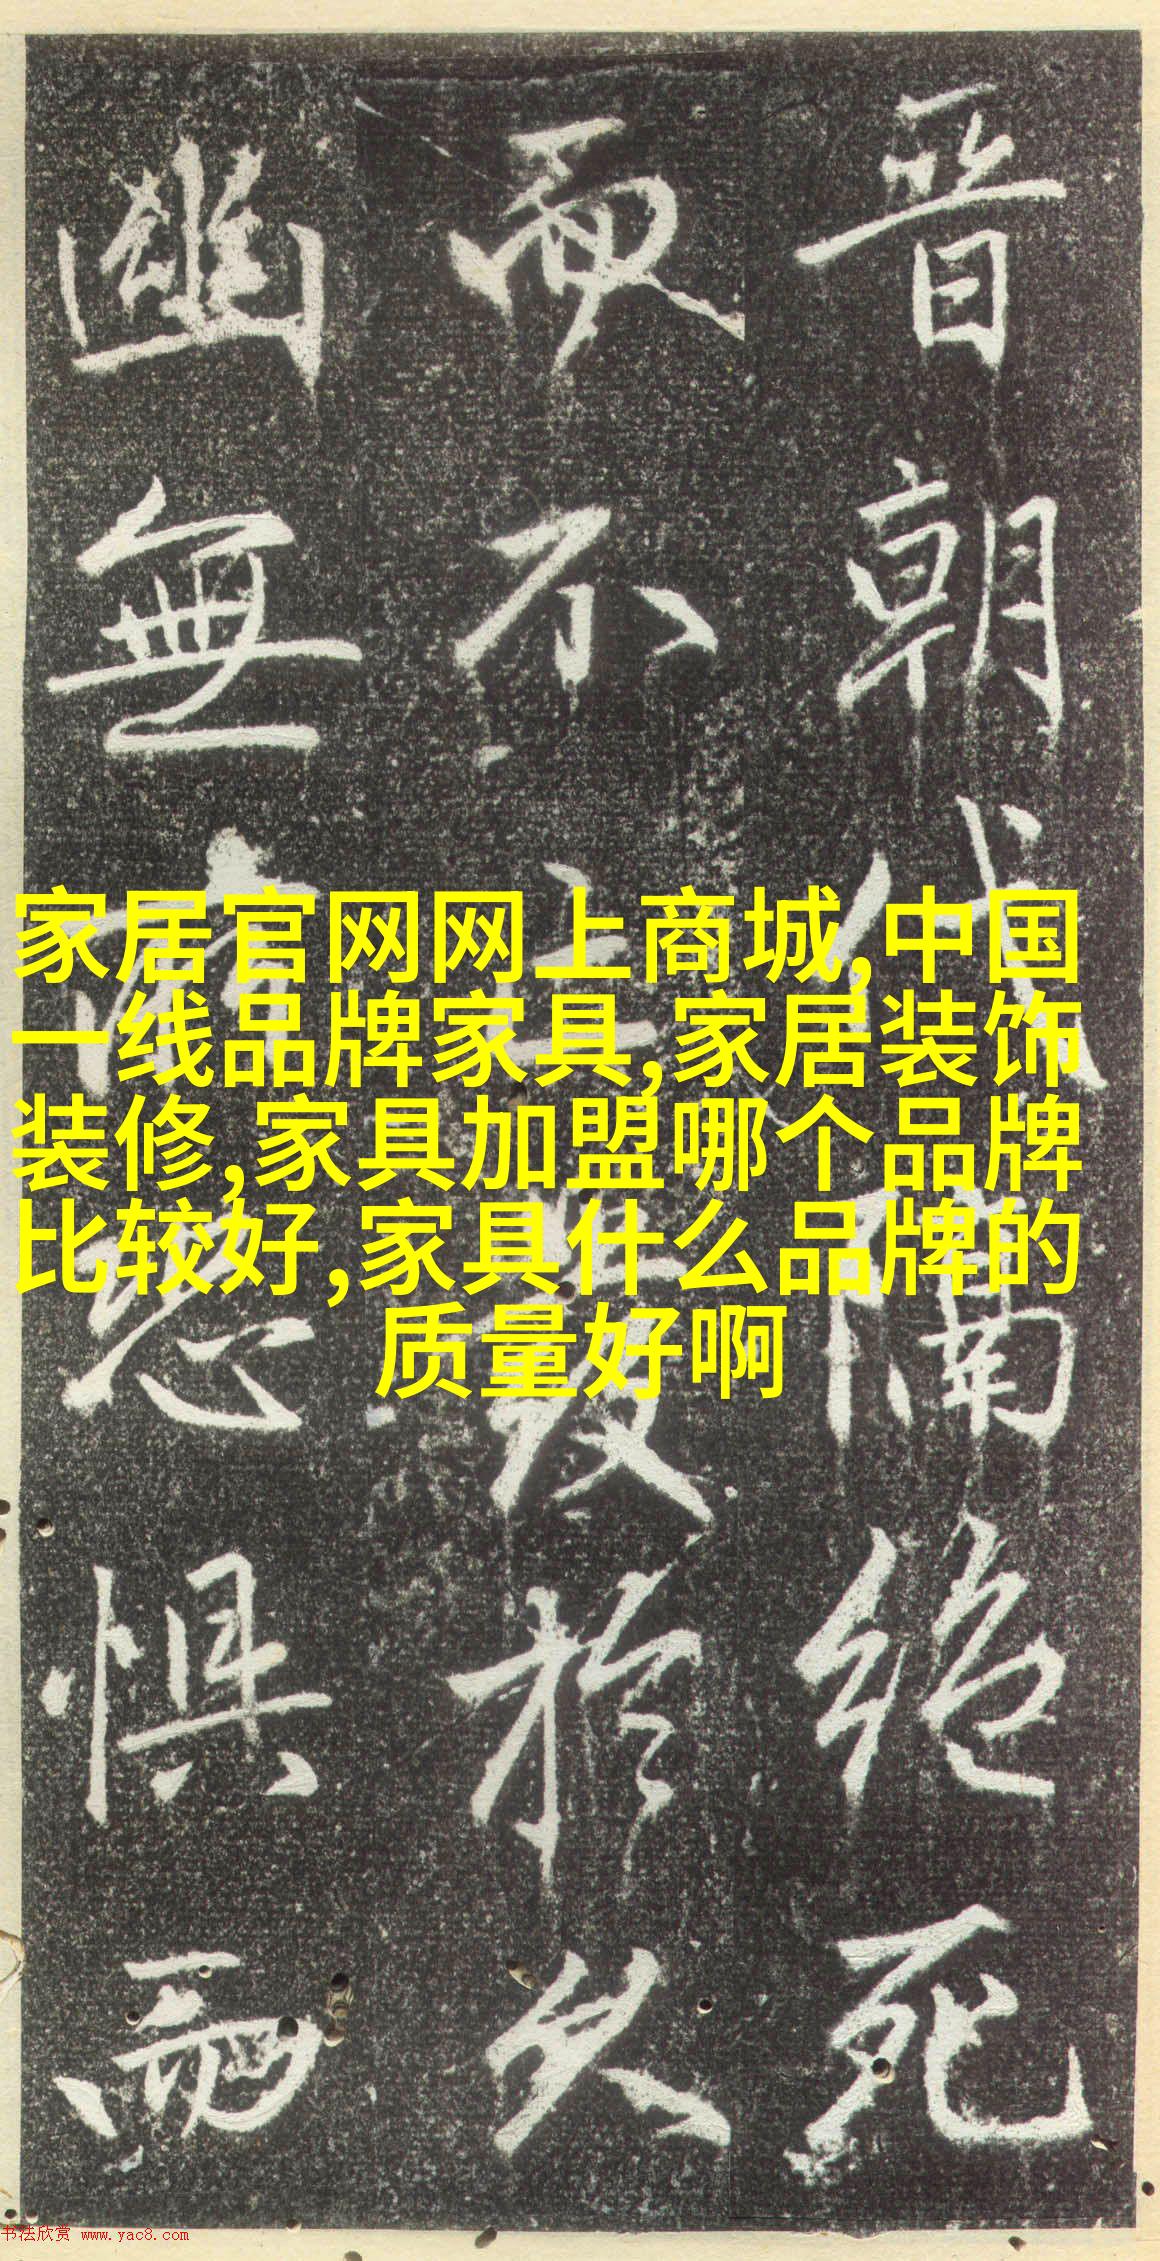 晋朝代隔絶死
而不於久
幽無惧而
家居官网网上商城,中国
一线品牌家具,家居装饰
装修,家具加盟哪个品牌
比较好,家具什么品牌的
质量好啊
书法欣赏 www.yac8.com